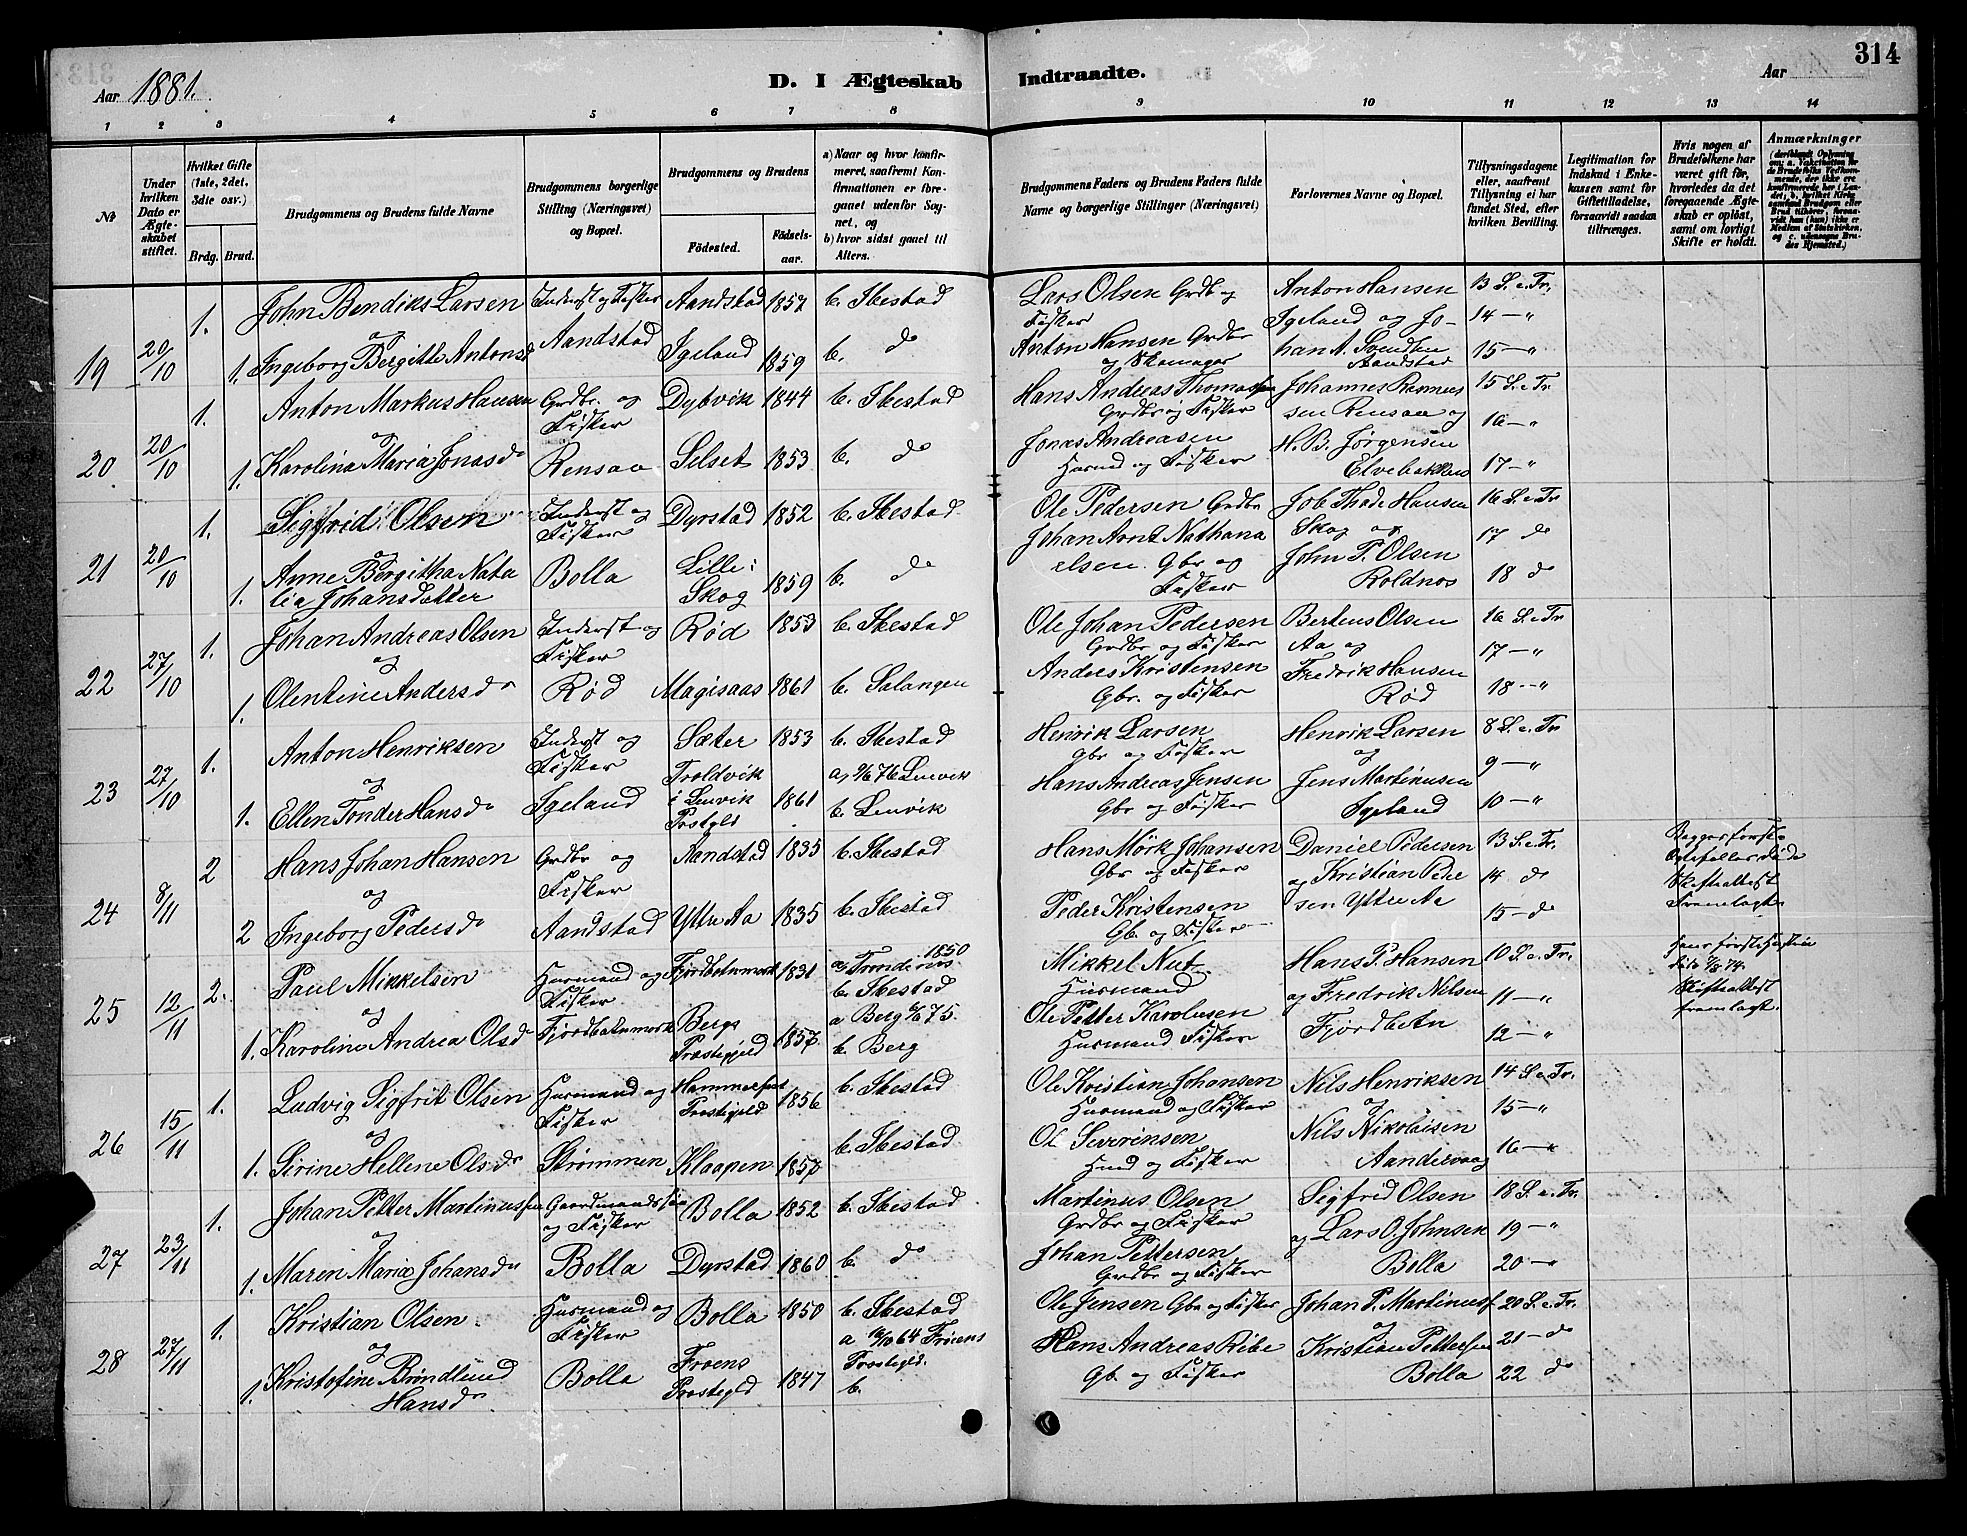 Aar 1881.
D. I Ægteskab Indtraadte.
Aar
314
1 2 3 4 5 6 7 8 9 10 11 12 13 14
№
Under hvilken Dato er Ægteskabet stiftet.
Hvilket Gifte (1ste, 2det, 3die osv.)
Brdg. Brud.
Brudgommens og Brudens fulde Navne
Brudgommens borgerlige Stilling (Næringsvei) og Bopæl.
Brudgommens og Brudens
Fødested.
Fødselsaar.
a) Naar og hvor konfirmeret, saafremt Konfirmationen er foregaaet udenfor Sognet, og
b) hvor sidst gaaet til Alters.
Brudgommens Faders og Brudens Faders fulde Navne og borgerlige Stillinger (Næringsvei)
Forlovernes Navne og Bopæl.
Tillysningsdagene eller, saafremt Tillysning ei har fundet Sted, efter hvilken Bevilling.
Legitimation for Indskud i Enkekassen samt for Giftetilladelse, forsaavidt saadan tiltrænges.
Hvis nogen af Brudefolkene har været gift før, hvorledes da det foregaaende Ægteskab er opløst, samt om lovligt Skifte er holdt.
Anmærkninger
19 20/10 1. John Bendiks Larsen Inderst og Fisker Aandstad 1857 b. Ibestad Lars Olsen Grdb og Fisker Anton Hansen 13 S. e. Tr.
og Aandstad Igeland og Jo- 14 — "
1. Ingeborg Bergitte Antonsd Igeland 1859 b. do Anton Hansen Grdbr og Skomager han A. Svendsen Aandstad 15 — "
20 20/10 1. Anton Markus Hansen Grdbr. og Fisker Dybvik 1844 b. Ibestad Hans Andreas Thomassen Grdbr og Fisker Johannes Rasmus 15 S. e. Tr.
og sen Rensaa og 16 — "
1. Karolina Maria Jonasdr Rensaa Selset 1853 b. do Jonas Andreasen Husmd og Fisker H. B. Jørgensen Elvebakken 17 — "
21 20/10 1. Sigfrid Olsen Inderst og Fisker Dyrstad 1852 b. Ibestad Ole Pedersen Grdbr Job Thode Hansen 16 S. e. Tr.
og Johan Arnt Nathana Skog og 17 do
1. Anne Bergitha Nata Bolla Lille: 1859 b. do elsen. Gbr og John P. Olsen
lia Johansdatter Skog Fisker Roldnos 18 do
22 27/10 1. Johan Andreas Olsen Inderst og Fisker Rød 1853 b. Ibestad Ole Johan Pedersen Grdbr og Fisker Berteus Olsen 16 S. e. Tr
og Aa og 17 — "
1. Olentine Andersdr Rød Magisaas 1861 b. Salangen Anders Kristensen Gbr. og Fisker Fredrik Hansen Rød 18 — "
23 27/10 1. Anton Henriksen Inderst og Fisker Sæter 1853 b. Ibestad Henrik Larsen Gbr og Fisker Henrik Larsen 8 S. e. Tr
og Troldvik i Lenvik a, 76 Lenvik og 9 — "
1. Ellen Tonder Hansdr Igeland Prstgld 1861 b. Lenvik Hans Andreas Jensen Gbr og Fisker Jens Martinusen Igeland 10 — "
24 8/11 2 Hans Johan Hansen Grdbr og Fisker Aandstad 1835 b. Ibestad Hans Mørk Johansen Gbr og Fisker Daniel Pedersen 13 S. e. Tr. Begges første
og og Kristian Peder 14 do Ægtefeller døde
2 Ingeborg Pedersdr Aandstad Ytre Aa 1835 b. Ibestad Peder Kristensen Gb. og Fisker sen Ytre Aa 15 — do Skifteattest Fremlagte
25 12/11 2. Paul Mikkelsen Husmand og Fisker Fjordbotnmark 1831 a, Trondenes 1850 Mikkel Nut Husmand Hans P. Hansen 10 S. e. Tr. Hans første Hustru
og b. Ibestad og Fredrik Nilsen 11 — " døde 74.
1. Karoline Andrea Olsdr Fjordbotnmark Bergs Præstegjeld 1857 a Berg 75. b. Berg Ole Petter Karolusen Husmand Fisker Fjordbotn 12 — " Skifteattest fremlagt.
26 15/11 1. Ludvig Sigfrit Olsen Husmand og Fisker Hammerfest Prestegjeld 1856 b. Ibestad Ole Kristian Johansen Husmand og Fisker Nils Henriksen 14 S. e. Tr.
og og 15 — "
1. Sirine Hellene Olsdr Strømmen Klaapen 1857 b. Ibestad Ol Severinsen Husmd og Fisker Nils Nikolaisen Aandervaag 16 — "
27 23/11 1. Johan Petter Martinussen Gaardmandssøn og Fisker Bolla 1852 b. Ibestad Martinus Olsen Grdbr og Fisker Sigfrid Olsen 18 S. e. Tr.
og og Lars O. Johnsen 19 — "
1. Maren Maria Johansdr Bolla Dyrstad 1860 b. do Johan Pettersen Grdbr og Fisker Bolla 20 — "
28 27/11 1. Kristian Olsen Husmand og Fisker Bolla 1850 b. Ibestad Ole Jensen Gbr og Fisker Johan P. Martinusf 20 S. e. Tr.
og a 64 Froens Prestegld. og 21 — do
1. Kristofine Brøndlund Hansdr Bolla Froens Prestegld 1847 b. Hans Andreas Ribe Gb. og Fisker Kristian Pettersen Bolla 22 do